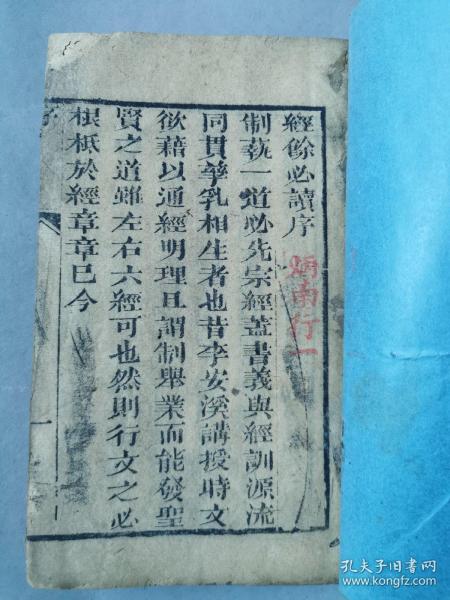 經餘必讀序
制藝一道必先宗經蓋書義與經訓源流
同貫孳乳相生者也昔李安溪講授時文
欲藉以通經明理且謂制舉業而能發聖
賢之道雖左右六經可也然則行文之必
根柢於經章章已今
序
一
南行一
孔夫子旧书网
www.kongfz.com